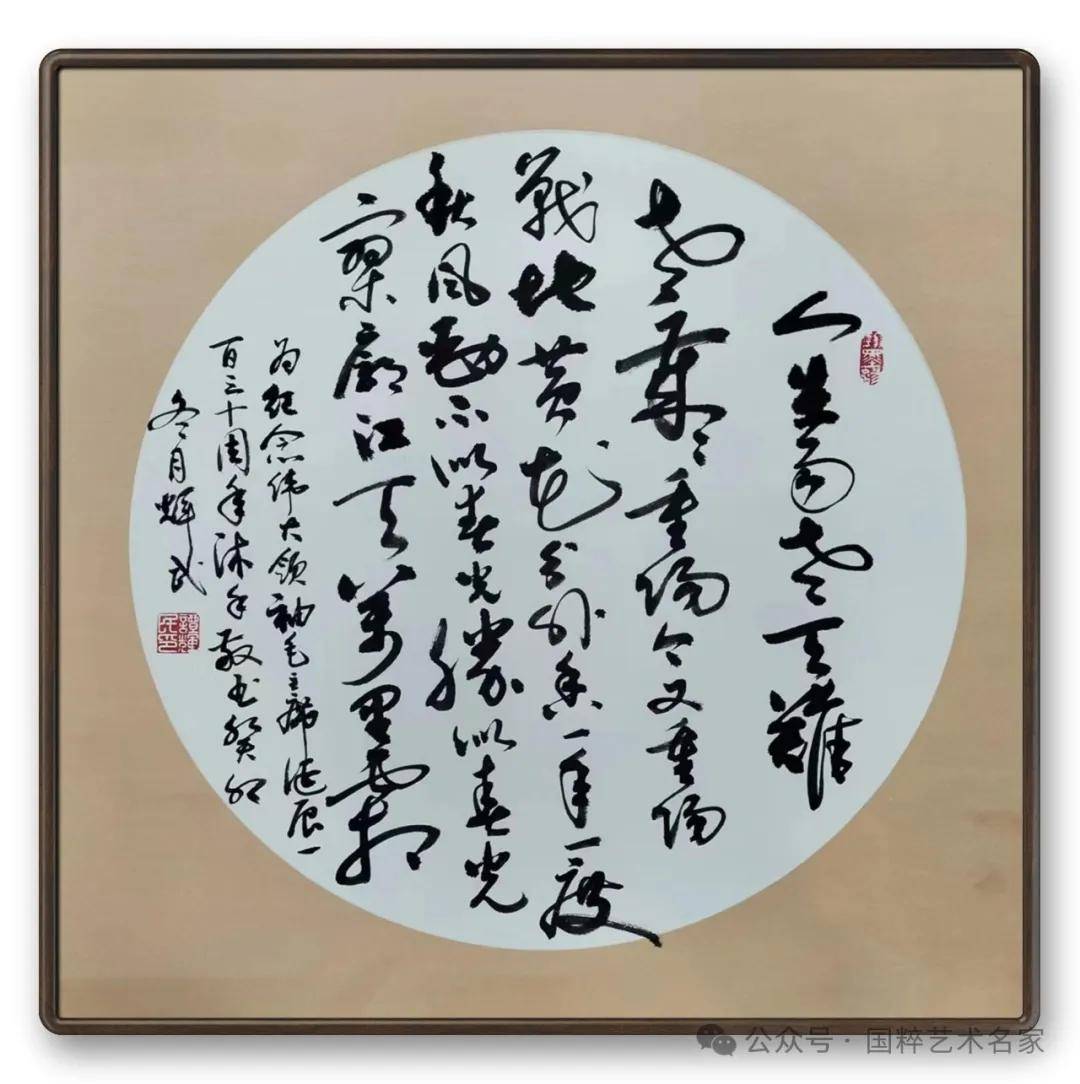 人生易老天難
老歲々重陽今又重陽
戰地黃花分外香一年一度
秋風勁不似春光勝似春光
寥廓江天萬里霜
为纪念伟大领袖毛主席诞辰一
百三十周年沐手敬书癸卯
冬月輝武
公众号 · 国粹艺术名家